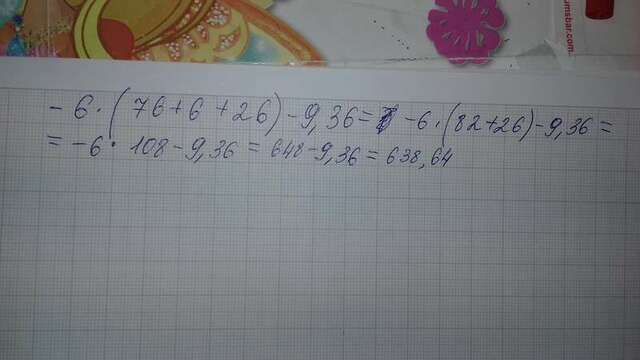 -6·(76+6+26)-9,36= -6·(82+26)-9,36=
=-6·108-9,36=648-9,36=638,64
umsbar.com